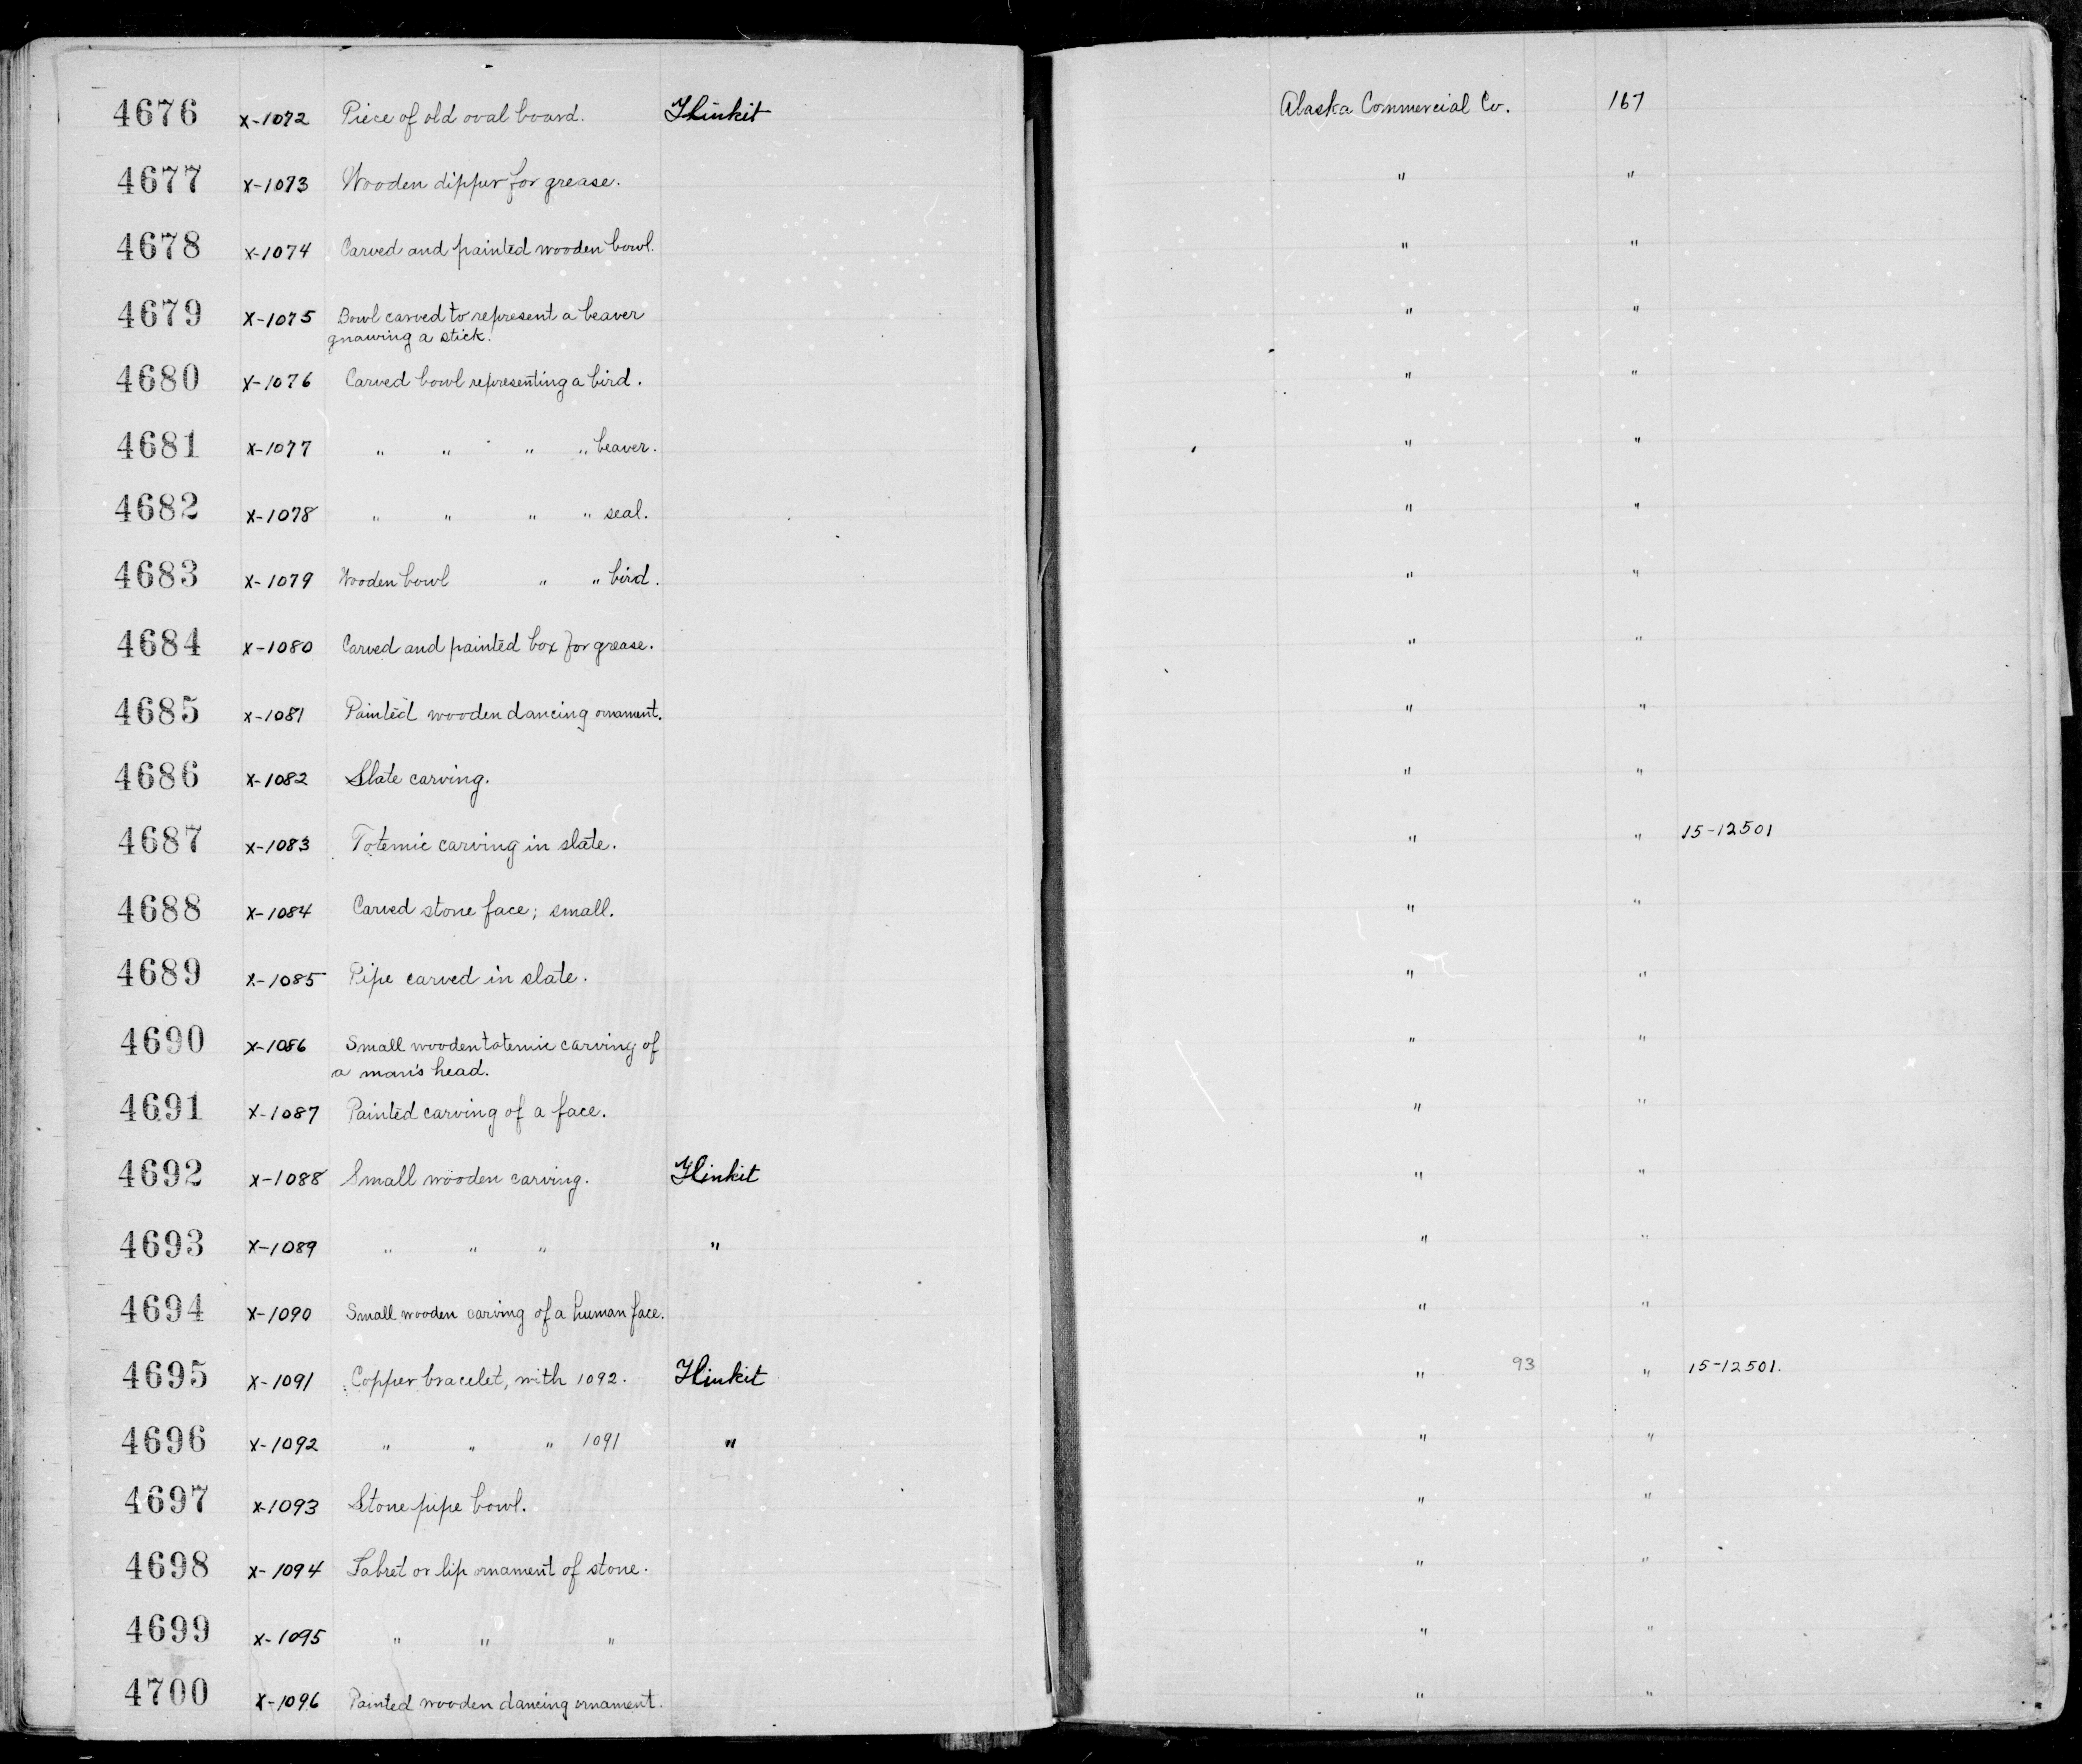 4676 X-1072 Piece of old oval board. Tlinkit Alaska Commercial Co. 167
4677 X-1073 Wooden dipper for grease. " "
4678 X-1074 Carved and painted wooden bowl. " "
4679 X-1075 Bowl carved to represent a beaver " "
gnawing a stick.
4680 X-1076 Carved bowl representing a bird. " "
4681 X-1077 " " " " beaver. " "
4682 X-1078 " " " " seal. " "
4683 X-1079 Wooden bowl " " bird. " "
4684 X-1080 Carved and painted box for grease. " "
4685 X-1081 Painted wooden dancing ornament. " "
4686 X-1082 Slate carving. " "
4687 X-1083 Totemic carving in slate. " " 15-12501
4688 X-1084 Carved stone face; small. " "
4689 X-1085 Pipe carved in slate. " "
4690 X-1086 Small wooden totemic carving of " "
a man's head.
4691 X-1087 Painted carving of a face. " "
4692 X-1088 Small wooden carving. Tlinkit " "
4693 X-1089 " " " " " "
4694 X-1090 Small wooden carving of a human face. " "
4695 X-1091 Copper bracelet, with 1092. Tlinkit " 93 " 15-12501.
4696 X-1092 " " " 1091 " " "
4697 X-1093 Stone pipe bowl. " "
4698 X-1094 Labret or lip ornament of stone. " "
4699 X-1095 " " " " "
4700 X-1096 Painted wooden dancing ornament. " "